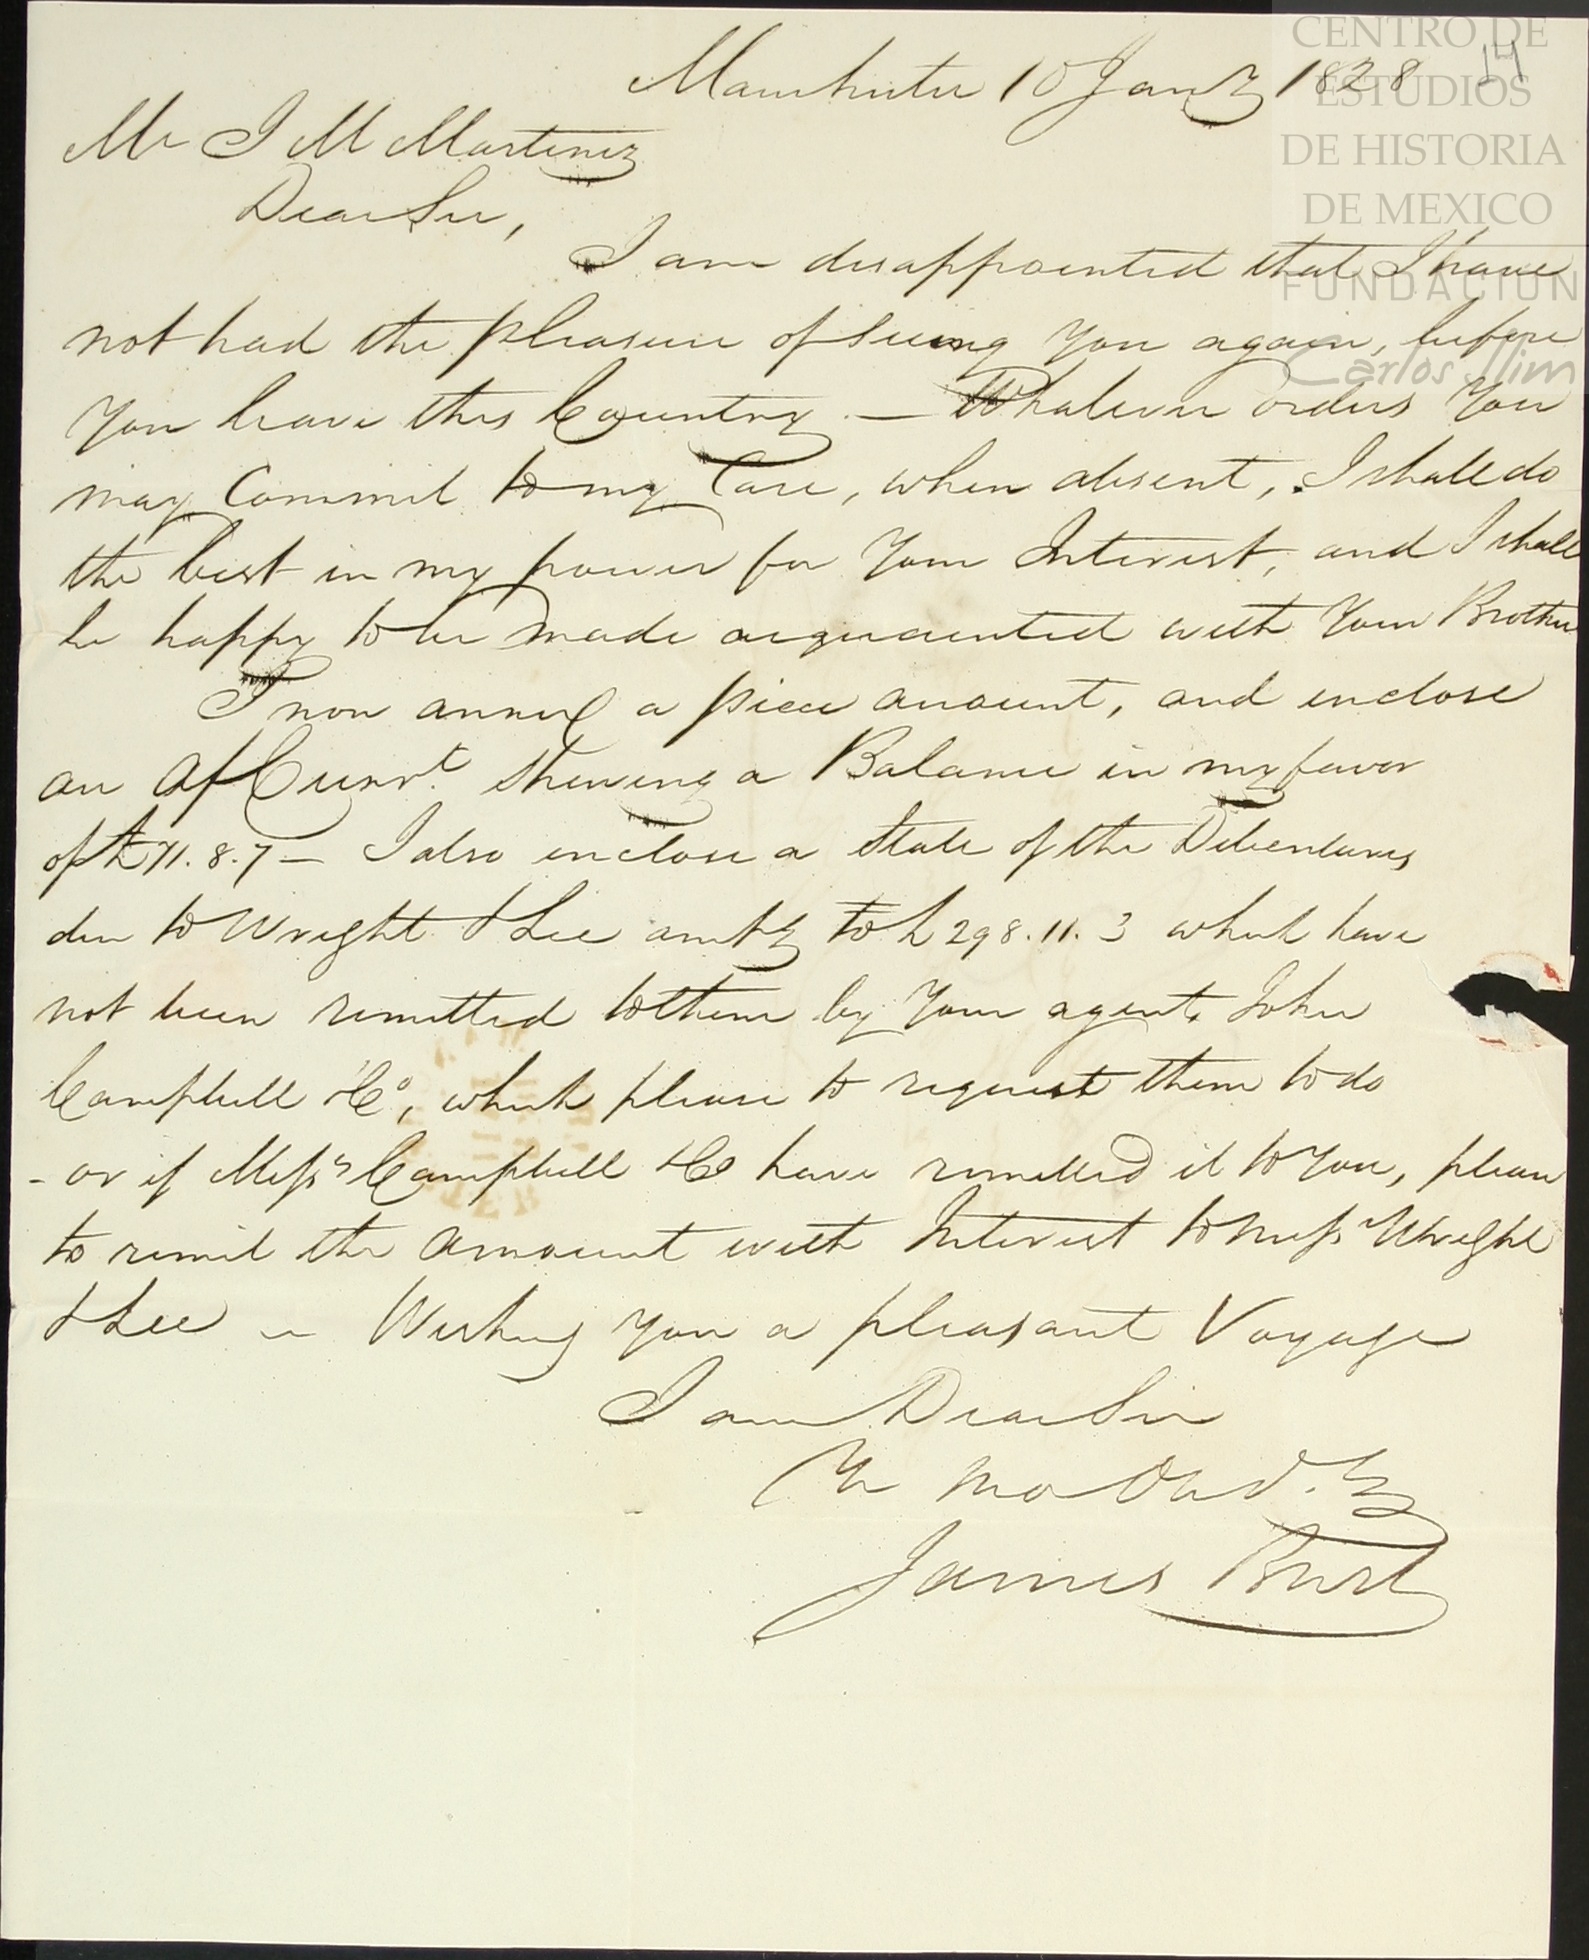 Manchester 10 Jany 1828
14
Mr J M Martinez
Dear Sir,
I am disappointed that I have
not had the pleasure of seeing You again, before
You leave this Country — Whatever orders You
may Commit to my Care, when absent, I shall do
the best in my power for Your Interest, and I shall
be happy to be made acquainted with Your Brother
I now annex a piece amount, and enclose
an A/Currt. shewing a Balance in my favor
of £71.8.7 — I also enclose a State of the Debentures
due to Wright & Lee amtg to £298.11.3 which have
not been remitted to them by Your agents John
Campbell & Co, which please to request them to do
- or if Messrs Campbell & Co have remitted it to You, please
to remit the amount with Interest to Messrs Wright
& Lee — Wishing You a pleasant Voyage
I am Dear Sir
Yr Mo Obd. Sr
James Burt
CENTRO DE
ESTUDIOS
DE HISTORIA
DE MEXICO
FUNDACION
Carlos Slim